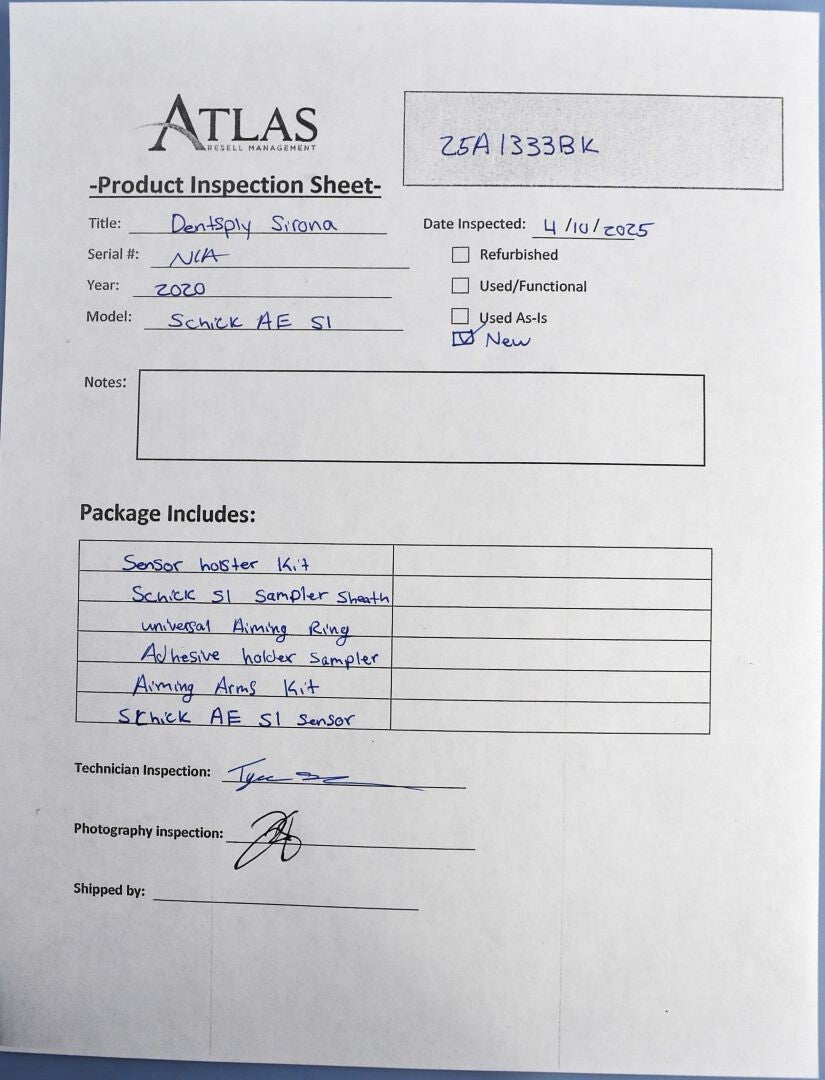 ATLAS
RESELL MANAGEMENT
25A1333BK
-Product Inspection Sheet-
Title: Dentsply Sirona
Date Inspected: 4/10/2025
Serial #: N/A
Refurbished
Year: 2020
Used/Functional
Model: Schick AE S1
Used As-Is
New
Notes:
Package Includes:
Sensor holster Kit
Schick S1 Sampler Sheath
universal Aiming Ring
Adhesive holder Sampler
Aiming Arms Kit
Schick AE S1 Sensor
Technician Inspection:
Photography inspection:
Shipped by: